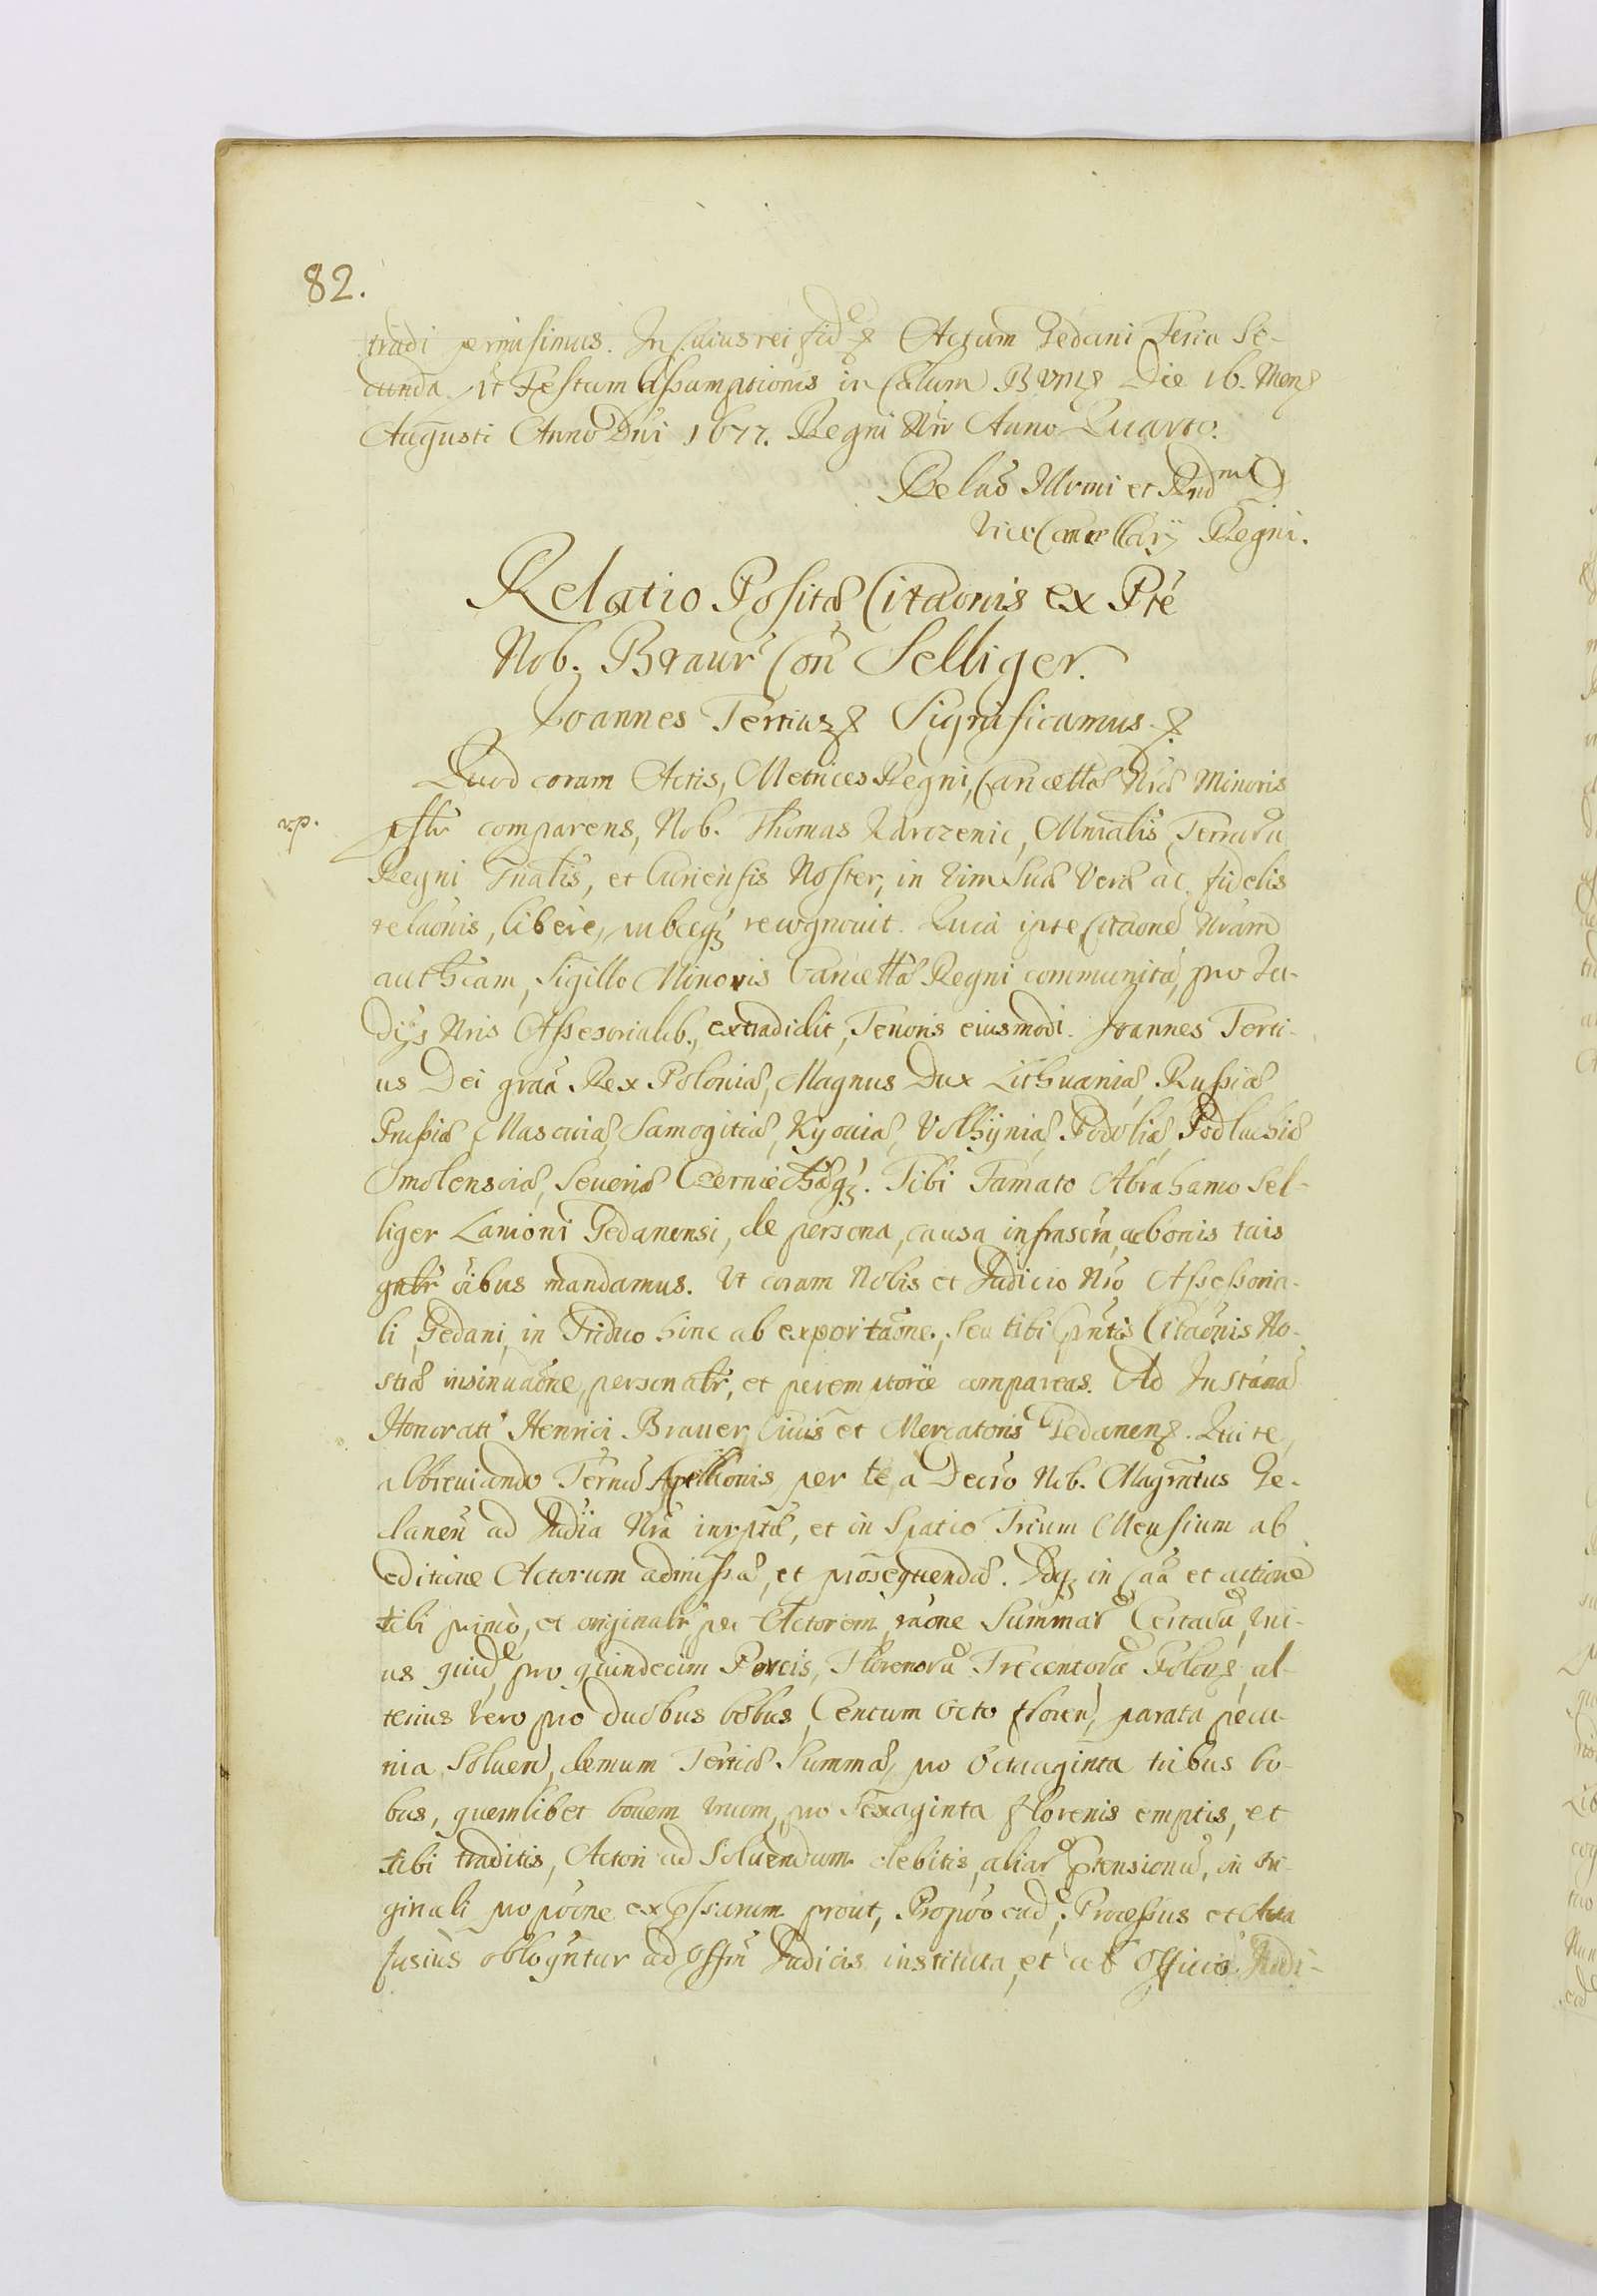 82.
tradi permisimus. In Cuius rei fid. Actum Gedani Feria Se-
cunda pt Festum Assumptionis in Cælum B VM Die 16. Mens
Augusti Anno Dni 1677. Regni Nri Anno Quarto.
Relao Illrmi et Rndmi D
Vice Cancellarij Regni.
Relatio Positæ Citaonis ex Pte
Nob. Braur Con Selliger.
Joannes Tertius Significamus.
Quod coram Actis, Metrices Regni, Cancellæ Nræ Minoris
rp. psltr comparens, Nob. Thomas Karczenic, Mnralis Terraru
Regni Gnalis, et Curiensis Noster, in Vim Suæ Veræ ac fidelis
relaonis, libere, publceq recognovit. Quia ipse Citaone Nram
authcam, Sigillo Minoris Cancellæ Regni communita, pro Ju-
dijs Nris Assesorialib., extradidit, Tenoris eiusmodi. Joannes Terti-
us Dei graa Rex Poloniæ, Magnus Dux Lithuaniæ, Russiæ
Prussiæ, Masoviæ, Samogitiæ, Kyoviæ, Volhyniæ, Podoliæ, Podlachiæ
Smolensciæ, Severiæ Czerniechoq. Tibi Famato Abrahamo Sel-
liger Lanioni Gedanensi, de persona, causa infrascra, ac bonis tuis
gnlr oibus mandamus. Vt coram Nobis et Judicio Nro Assessoria-
li, Gedani, in Triduo hinc ab exportaone, seu tibi pntis Citaonis No-
stræ insinuaone, personalr, et peremptorie compareas. Ad Instana
Honorati Henrici Brauer Civis et Mercatoris Gedanen. Qui te,
abbreviando Terno Apellionis, per te, a Decro Nob. Magratus Ge-
danen ad Judia Nra inrptæ, et in Spatio Trium Mensium ab
editione Actorum admissæ, et prosequendæ. Idq in Caa et actione
tibi primo, et originalr per Actorem, raone Summar Certaru, Vni-
us quid pro quindecim Porcis, Florenoru Trecentoru Polon, al-
terius vero pro duobus bobus Centum octo floren, parata pecu-
nia Soluen, demum Tertiæ Summæ, pro Octuaginta tribus bo-
bus, quemlibet bovem unum, pro Sexaginta florenis emptis, et
tibi traditis, Actori ad Solvendum debitis, aliar prtensionu, in ori-
ginali propoone expssarum prout, Propoo ead, Processus et Acta
fusius obloqntur ad Offm Judicis instituta, et ab Officio Judi-